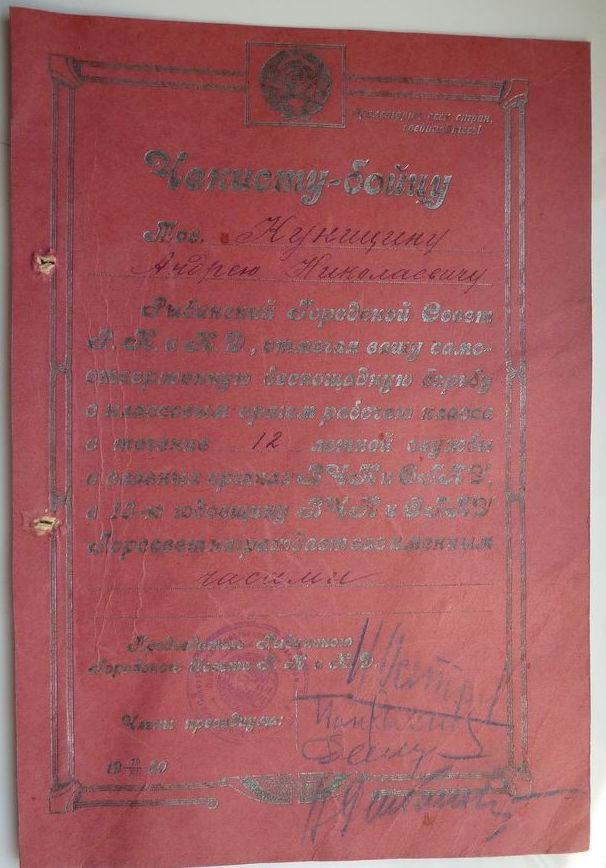 Пролетарии всех стран,
соединяйтесь!
Чекисту-бойцу
Тов. Куницину
Андрею Николаевичу
Рыбинский Городской Совет
Р. К. и К. Д., отмечая вашу само-
отверженную беспощадную борьбу
с классовым врагом рабочего класса
в течение 12 летней службы
в славных органах ВЧК и ОГПУ,
в 13-ю годовщину ВЧК и ОГПУ
Горсовет награждает вас именными
часами
Председатель Рыбинского
Городского Совета Р. К. и К. Д.
Члены президиума: